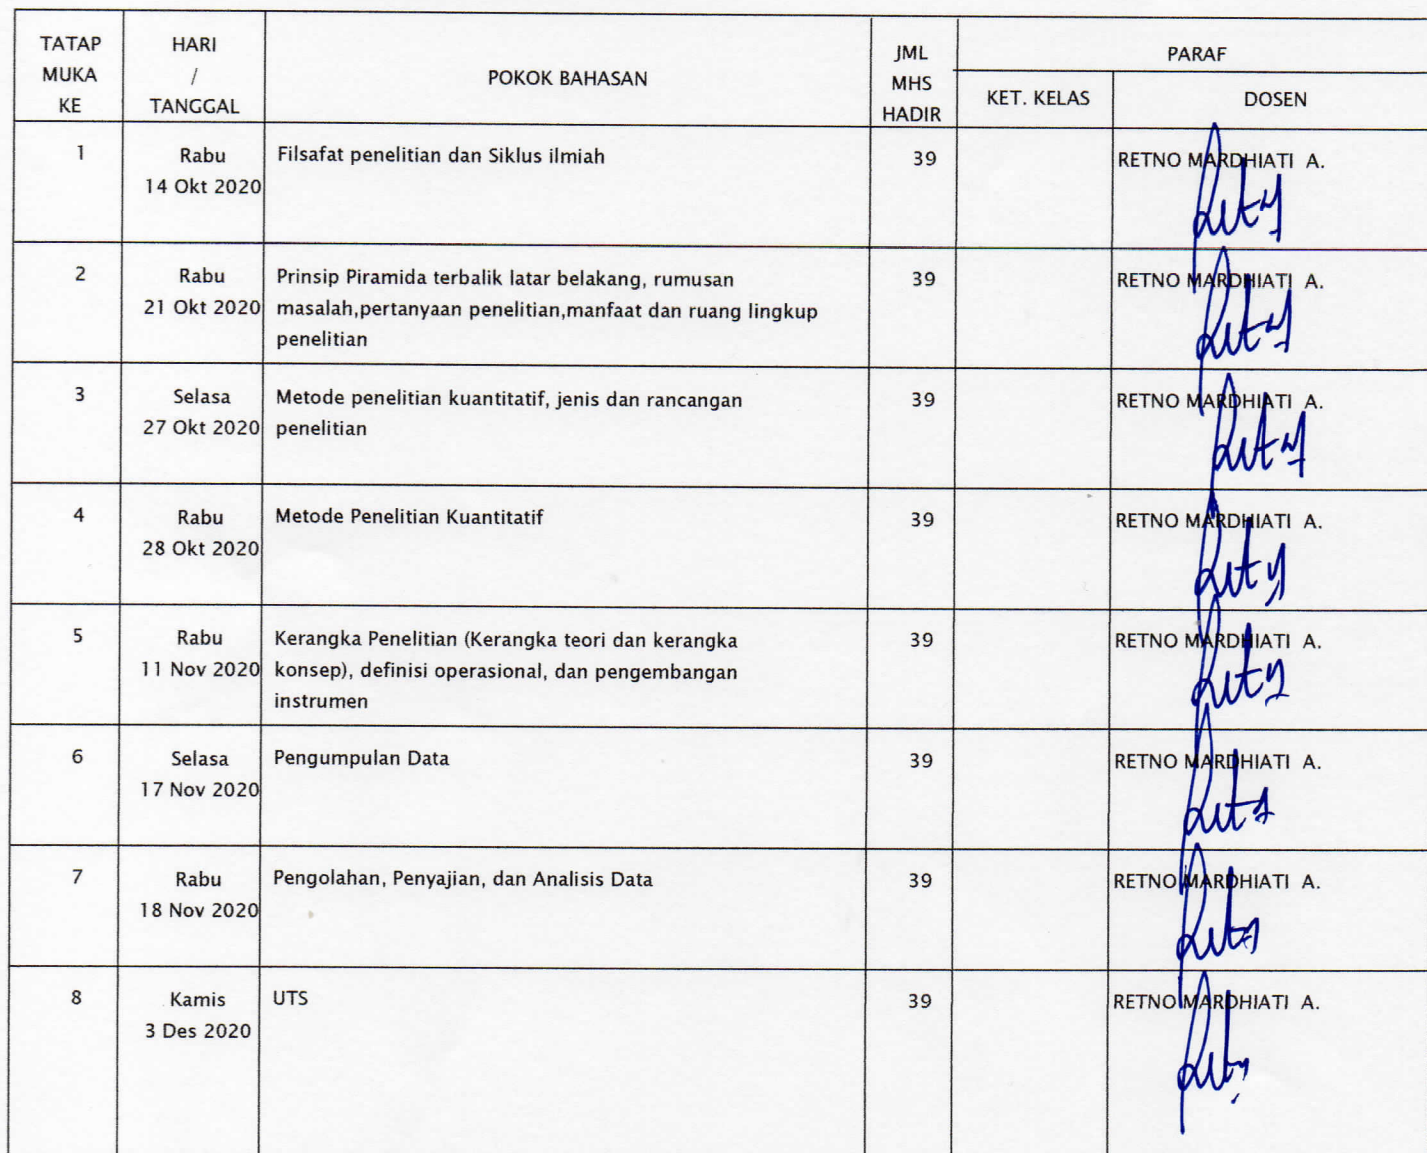 TATAP MUKA KE
HARI / TANGGAL
POKOK BAHASAN
JML MHS HADIR
PARAF
KET. KELAS
DOSEN
1
Rabu
14 Okt 2020
Filsafat penelitian dan Siklus ilmiah
39
RETNO MARDHIATI A.
2
Rabu
21 Okt 2020
Prinsip Piramida terbalik latar belakang, rumusan
masalah,pertanyaan penelitian,manfaat dan ruang lingkup
penelitian
39
RETNO MARDHIATI A.
3
Selasa
27 Okt 2020
Metode penelitian kuantitatif, jenis dan rancangan
penelitian
39
RETNO MARDHIATI A.
4
Rabu
28 Okt 2020
Metode Penelitian Kuantitatif
39
RETNO MARDHIATI A.
5
Rabu
11 Nov 2020
Kerangka Penelitian (Kerangka teori dan kerangka
konsep), definisi operasional, dan pengembangan
instrumen
39
RETNO MARDHIATI A.
6
Selasa
17 Nov 2020
Pengumpulan Data
39
RETNO MARDHIATI A.
7
Rabu
18 Nov 2020
Pengolahan, Penyajian, dan Analisis Data
39
RETNO MARDHIATI A.
8
Kamis
3 Des 2020
UTS
39
RETNO MARDHIATI A.